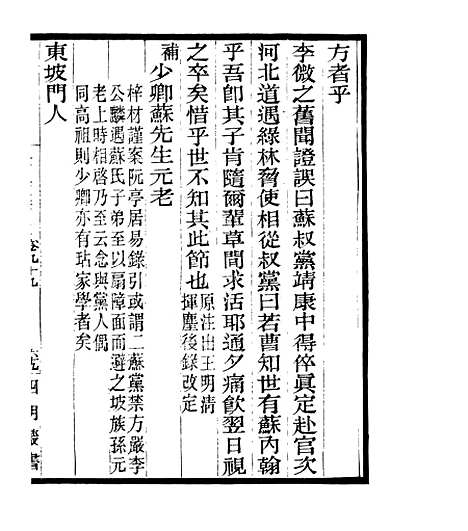 方者乎
李微之舊聞證誤曰蘇叔黨靖康中得倅眞定赴官次
河北道遇綠林脅使相從叔黨曰若曹知世有蘇內翰
乎吾卽其子肯隨爾輩草間求活耶通夕痛飮翌日視
之卒矣惜乎世不知其此節也原注出王明清
揮塵後錄改定
補少卿蘇先生元老
梓材謹案阮亭居易錄引或謂二蘇黨禁方嚴李
公麟遇蘇氏子弟至以扇障面而避之坡族孫元
老上時相啓乃至云念與黨人偶
同高祖則少卿亦有玷家學者矣
東坡門人
卷九十九
四明叢書